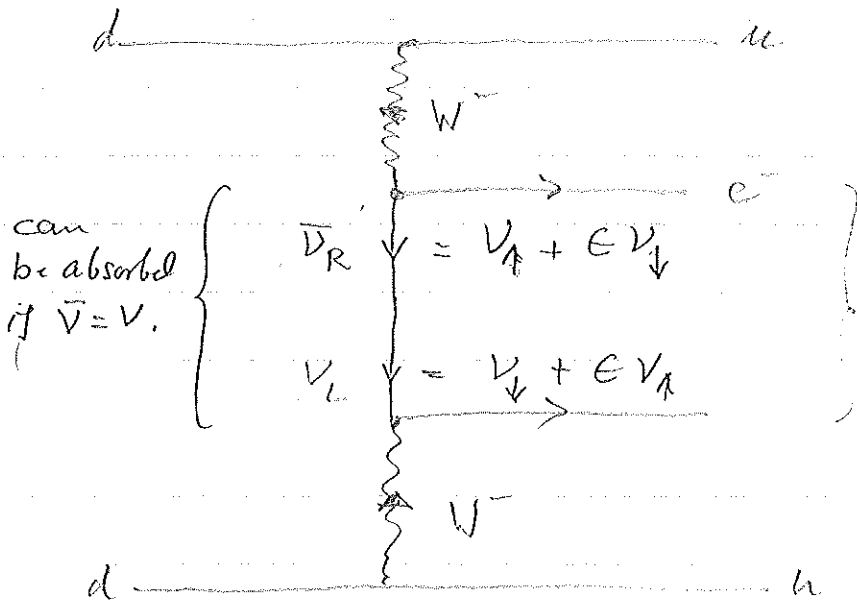 d u
W⁻
e⁻
can
be absorbed
if ν̄ = ν.
ν̄_R = ν_⇑ + ϵ ν_↓
ν_L = ν_↓ + ϵ ν_⇑
W⁻
d u